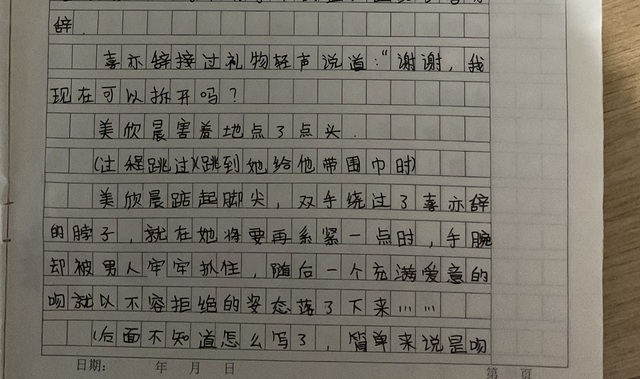 辞.
喜亦辞接过礼物轻声说道:“谢谢,我
现在可以拆开吗?
美欣晨害羞地点了点头.
(过程跳过)(跳到她给他带围巾时)
美欣晨踮起脚尖,双手绕过了喜亦辞
的脖子,就在她将要再系紧一点时,手腕
却被男人牢牢抓住,随后一个充满爱意的
吻就以不容拒绝的姿态落了下来……
(后面不知道怎么写了,简单来说是吻
日期: 年 月 日
第 页